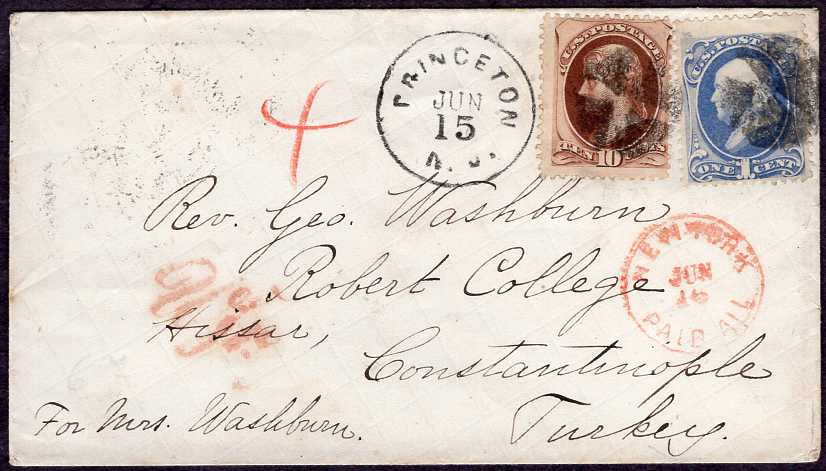 PRINCETON
JUN
15
N. J.
U.S. POSTAGE
TEN 10 CENTS
U.S. POSTAGE
ONE 1 CENT
Rev. Geo. Washburn
Robert College
Hissar,
Constantinople
Turkey.
For Mrs. Washburn.
NEW YORK
JUN
16
PAID ALL